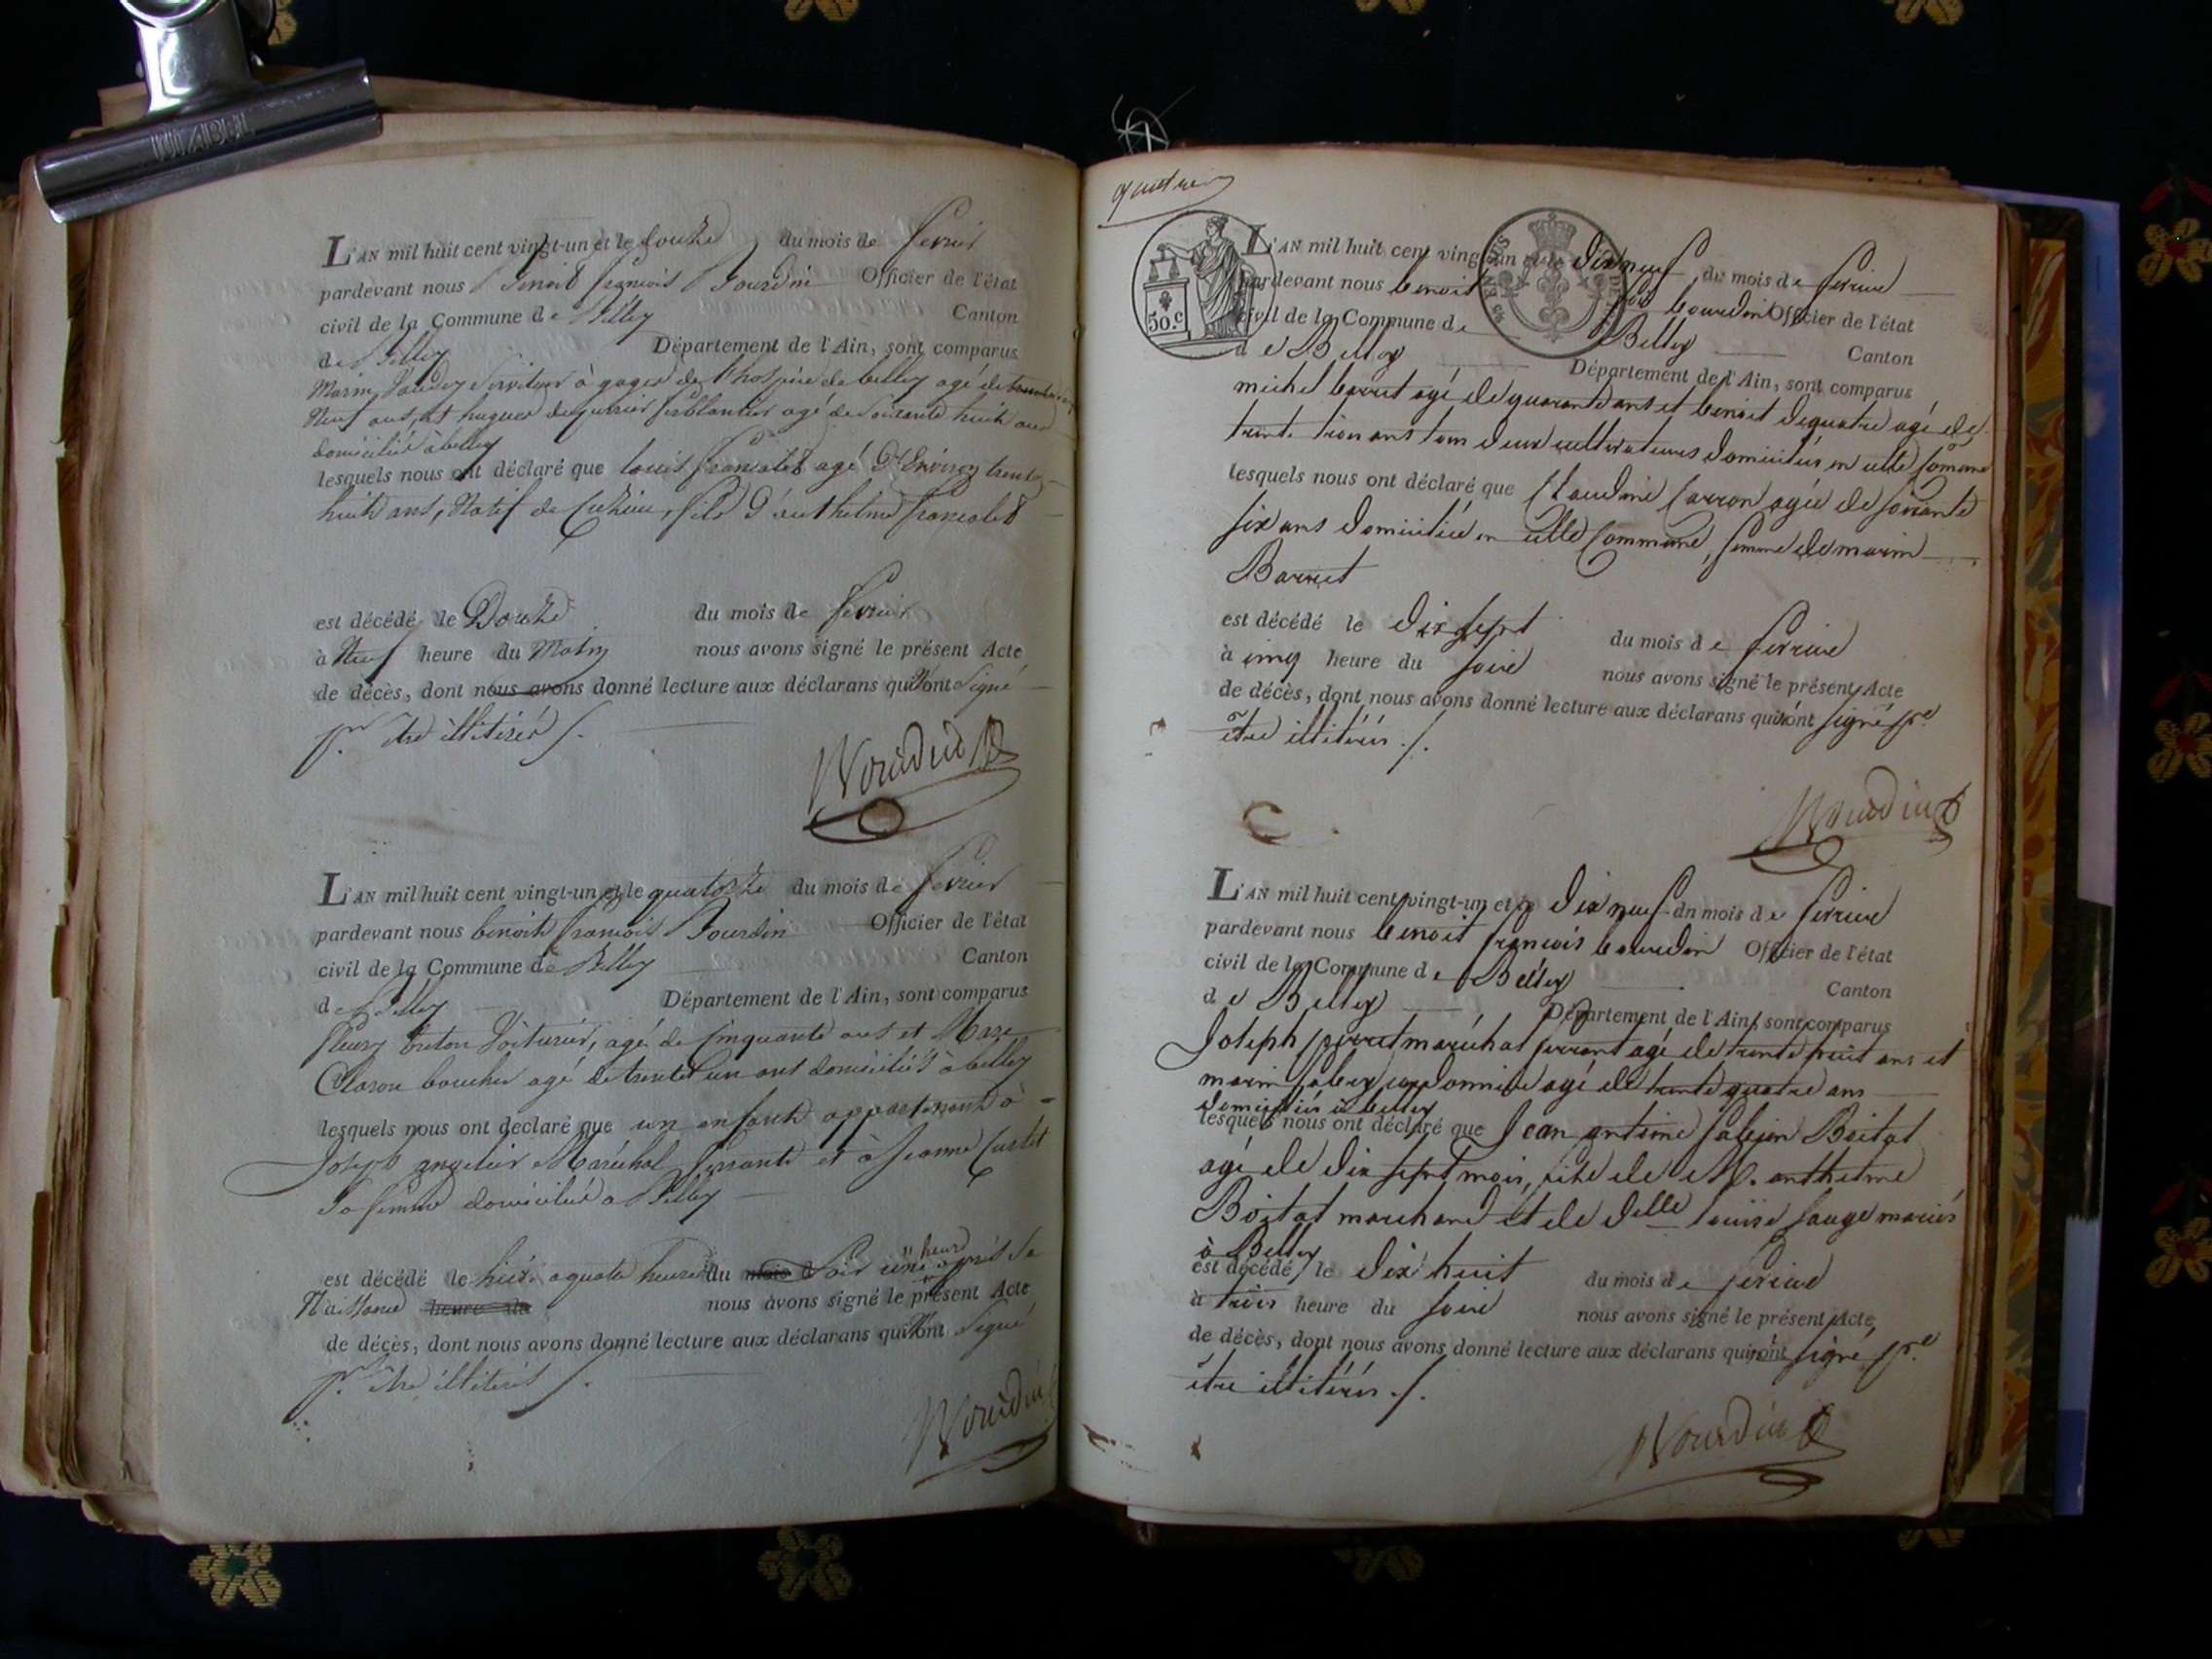 KITABEL
L'AN mil huit cent vingt-un et le douze du mois de fevrier
pardevant nous Benoit françois Bourdin Officier de l'état
civil de la Commune de Belley Canton
de Belley Département de l'Ain, sont comparus
Marin serviteur à gages de l'hospice de belley agé de
Neuf ans, et hugues ferblantier agé de soixante huit ans
domiciliés à belley
lesquels nous ont déclaré que louis françalet agé D'Environ trente
huit ans, Natif de fils d'anthelme françalet
est décédé le Douze du mois de fevrier
à Neuf heure du Matin nous avons signé le présent Acte
de décès, dont nous avons donné lecture aux déclarans qui n'ont signé
pr. être illitérés ./.
Bourdin
L'AN mil huit cent vingt-un et le quatorze du mois de fevrier
pardevant nous benoit françois Bourdin Officier de l'état
civil de la Commune de Belley Canton
de Belley Département de l'Ain, sont comparus
fleury voiturier, agé de cinquante ans et Marc
boucher agé de trente un ans domiciliés à belley
lesquels nous ont déclaré que un enfant appartenant à
Joseph angelier Maréchal ferrant et à Jeanne
sa femme domicilié à Belley
est décédé le hier a quatre heures du soir une heure après sa
Naissance nous avons signé le présent Acte
de décès, dont nous avons donné lecture aux déclarans qui n'ont signé
pr. être illiterés ./.
Bourdin
quatre
50.c
L'AN mil huit cent vingt-un et le Dix neuf du mois de fevrier
pardevant nous benoit fois bourdin Officier de l'état
civil de la Commune de Belley Canton
de Belley Département de l'Ain, sont comparus
michel barret agé de quarante ans et benoit dequatre agé de
trente trois ans tous deux cultivateurs domiciliés en cette Comune
lesquels nous ont déclaré que Claudine Carron agée de soixante
six ans domiciliée en cette Commune, femme de marin
Barret
est décédé le dix sept du mois de fevrier
à cinq heure du soire nous avons signé le présent Acte
de décès, dont nous avons donné lecture aux déclarans qui n'ont signé pr.
être illitérés ./.
Bourdin
L'AN mil huit cent vingt-un et le Dix neuf du mois de fevrier
pardevant nous benoit françois bourdin Officier de l'état
civil de la Commune de Belley Canton
de Belley Département de l'Ain, sont comparus
Joseph perret maréchal ferrant agé de trente huit ans et
marin cordonnier agé de trente quatre ans
domiciliés à belley
lesquels nous ont déclaré que Jean antoine Boitat
agé de dix sept mois, fils de M. anthelme
Boitat marchand et de delle louise sauge mariés
à Belley
est décédé le dix huit du mois de fevrier
à trois heure du soire nous avons signé le présent Acte
de décès, dont nous avons donné lecture aux déclarans qui n'ont signé pr.
être illitérés ./.
Bourdin